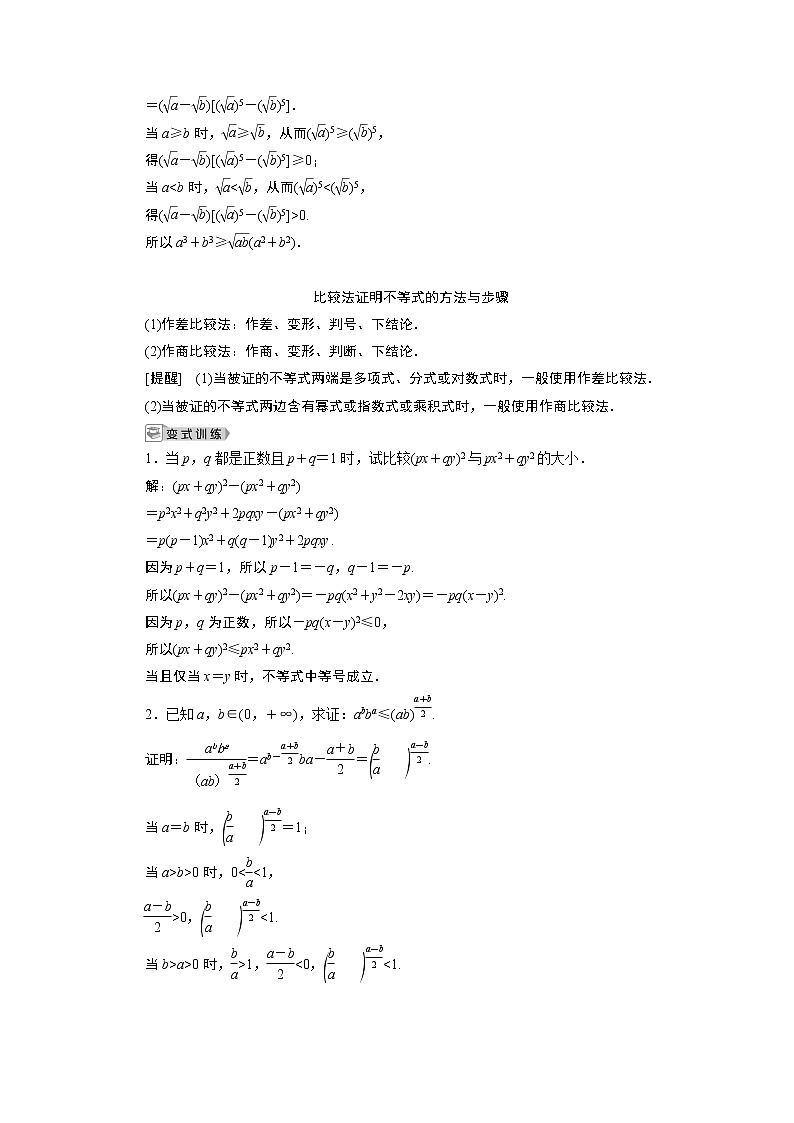 =(√a-√b)[(√a)⁵-(√b)⁵].
当 a≥b 时，√a≥√b，从而(√a)⁵≥(√b)⁵，
得(√a-√b)[(√a)⁵-(√b)⁵]≥0；
当 a<b 时，√a<√b，从而(√a)⁵<(√b)⁵，
得(√a-√b)[(√a)⁵-(√b)⁵]>0.
所以 a³+b³≥√ab(a²+b²)．
比较法证明不等式的方法与步骤
(1)作差比较法：作差、变形、判号、下结论．
(2)作商比较法：作商、变形、判断、下结论．
[提醒] (1)当被证的不等式两端是多项式、分式或对数式时，一般使用作差比较法．
(2)当被证的不等式两边含有幂式或指数式或乘积式时，一般使用作商比较法．
变式训练
1．当 p，q 都是正数且 p+q=1 时，试比较(px+qy)²与 px²+qy²的大小．
解：(px+qy)²-(px²+qy²)
=p²x²+q²y²+2pqxy-(px²+qy²)
=p(p-1)x²+q(q-1)y²+2pqxy.
因为 p+q=1，所以 p-1=-q，q-1=-p.
所以(px+qy)²-(px²+qy²)=-pq(x²+y²-2xy)=-pq(x-y)².
因为 p，q 为正数，所以-pq(x-y)²≤0，
所以(px+qy)²≤px²+qy².
当且仅当 x=y 时，不等式中等号成立．
2．已知 a，b∈(0，+∞)，求证：a^b b^a≤(ab)^((a+b)/2).
证明：a^b b^a/（ab）^((a+b)/2)=a^(b-(a+b)/2)ba-(a+b)/2=(b/a)^((a-b)/2).
当 a=b 时，(b/a)^((a-b)/2)=1；
当 a>b>0 时，0<b/a<1，
(a-b)/2>0，(b/a)^((a-b)/2)<1.
当 b>a>0 时，b/a>1，(a-b)/2<0，(b/a)^((a-b)/2)<1.